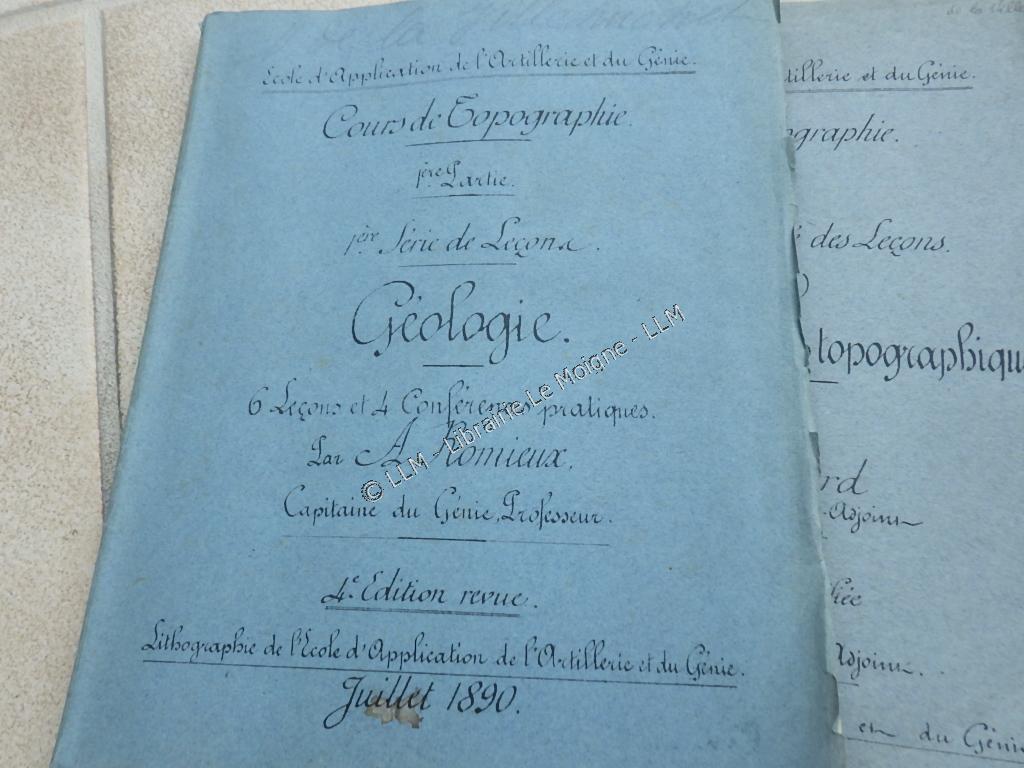 de la Villemarqué
Ecole d'Application de l'Artillerie et du Génie.
Cours de Topographie.
1ère Partie.
1ère Série de Leçons.
Géologie.
6 Leçons et 4 Conférences pratiques.
Par A Romieux,
Capitaine du Génie, Professeur.
4e Edition revue.
Lithographie de l'Ecole d'Application de l'Artillerie et du Génie.
Juillet 1890.
© LLM - Librairie Le Moigne - LLM
de la Ville
tillerie et du Génie.
ographie.
des Leçons.
topographiqu
rd
Adjoint
iée
Adjoint.
et du Génie